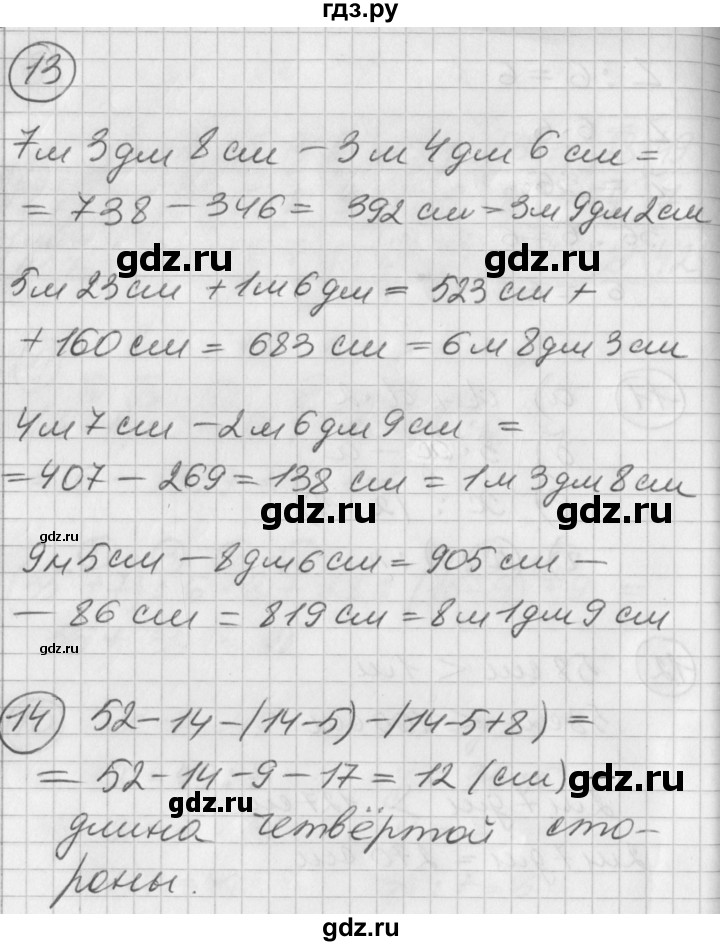 гдз.ру
13
7м 3дм 8см - 3м 4дм 6см =
= 738 - 346 = 392 см = 3м 9дм 2см
gdz.ru gdz.ru
5м 23см + 1м 6дм = 523см +
+ 160см = 683 см = 6м 8дм 3см
4м 7см - 2м 6дм 9см =
= 407 - 269 = 138 см = 1м 3дм 8см
gdz.ru gdz.ru
gdz.ru
9м 5см - 8дм 6см = 905см -
- 86 см = 819см = 8м 1дм 9см
gdz.ru
14 52-14-(14-5)-(14-5+8) =
= 52-14-9-17 = 12 (см)
gdz.ru gdz.ru
длина четвёртой сто-
роны.
gdz.ru